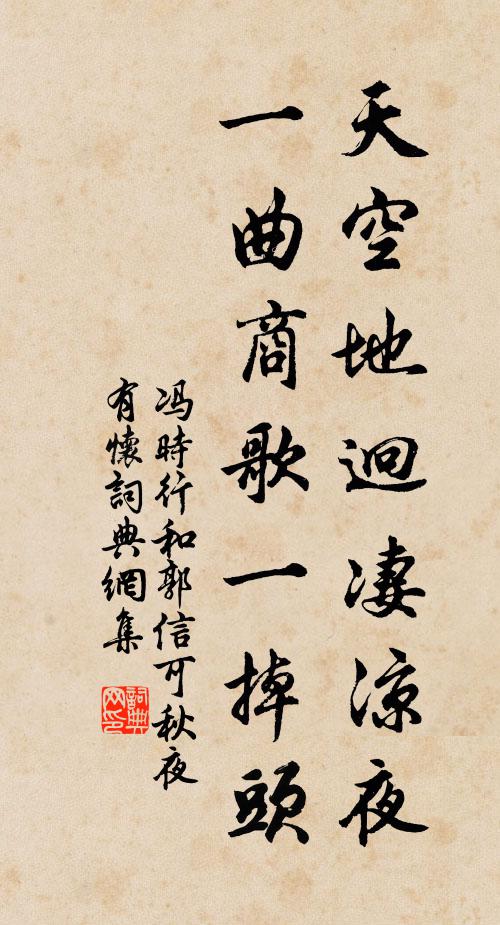 天空地迥凄涼夜
一曲商歌一掉頭
冯時行和郭信可秋夜
有懷詞典網集
詞典网印